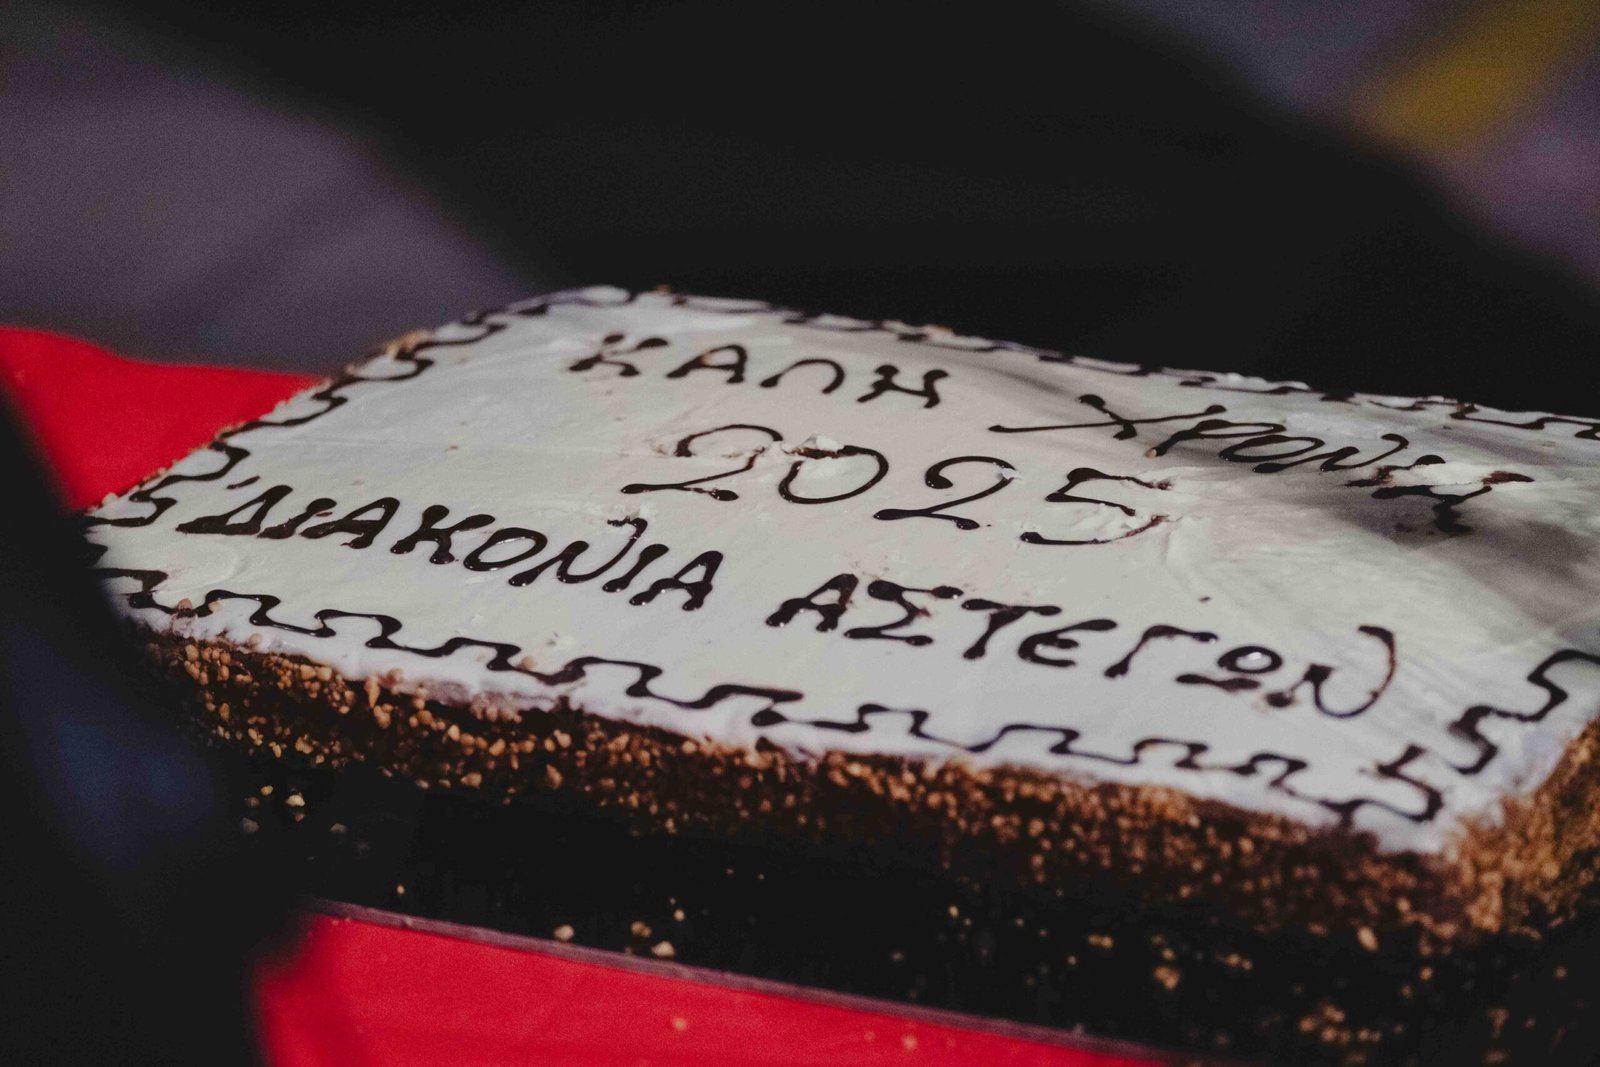 ΚΑΛΗ ΧΡΟΝΙΑ
2025
"ΔΙΑΚΟΝΙΑ ΑΣΤΕΓΩΝ"